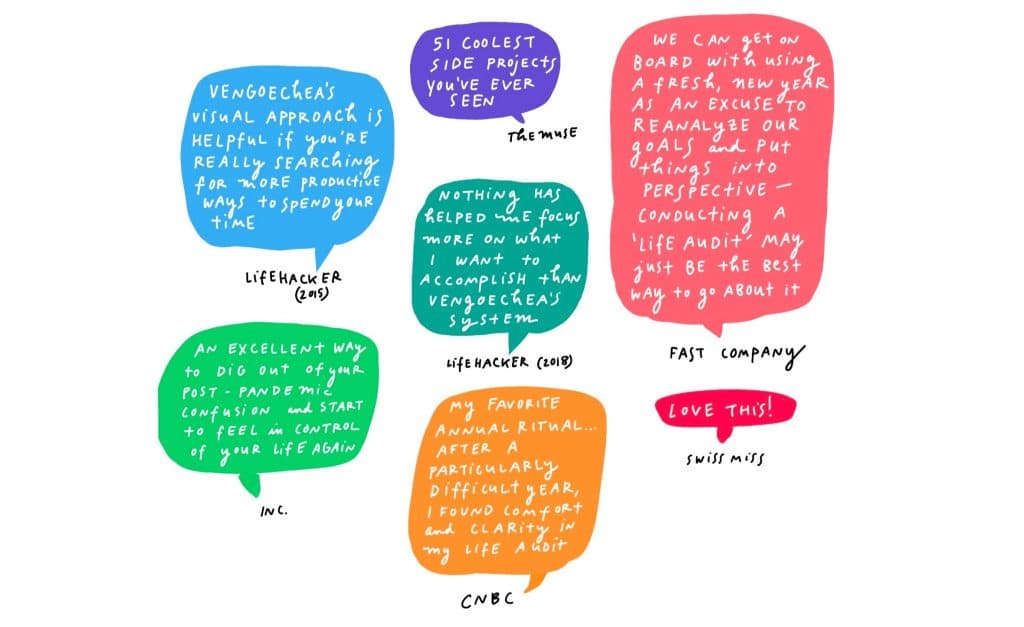 VENGOECHEA'S
VISUAL APPROACH IS
HELPFUL IF YOU'RE
REALLY SEARCHING
FOR MORE PRODUCTIVE
WAYS TO SPEND YOUR
TIME
LIFEHACKER
(2015)
51 COOLEST
SIDE PROJECTS
YOU'VE EVER
SEEN
THE MUSE
WE CAN GET ON
BOARD WITH USING
A FRESH, NEW YEAR
AS AN EXCUSE TO
REANALYZE OUR
GOALS and PUT
THINGS INTO
PERSPECTIVE —
CONDUCTING A
'LIFE AUDIT' MAY
JUST BE THE BEST
WAY TO GO ABOUT IT
FAST COMPANY
NOTHING HAS
HELPED ME FOCUS
MORE ON WHAT
I WANT TO
ACCOMPLISH THAN
VENGOECHEA'S
SYSTEM
LIFEHACKER (2018)
AN EXCELLENT WAY
TO DIG OUT OF YOUR
POST-PANDEMIC
CONFUSION and START
TO FEEL in CONTROL
OF YOUR LIFE AGAIN
INC.
MY FAVORITE
ANNUAL RITUAL...
AFTER A
PARTICULARLY
DIFFICULT YEAR,
I FOUND COMFORT
and CLARITY IN
MY LIFE AUDIT
CNBC
LOVE THIS!
SWISS MISS